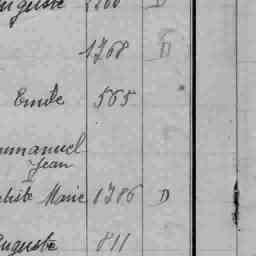 Auguste D
1768 D
Emile 565
Emmanuel
Jean
Marie 1786 D
Auguste 811